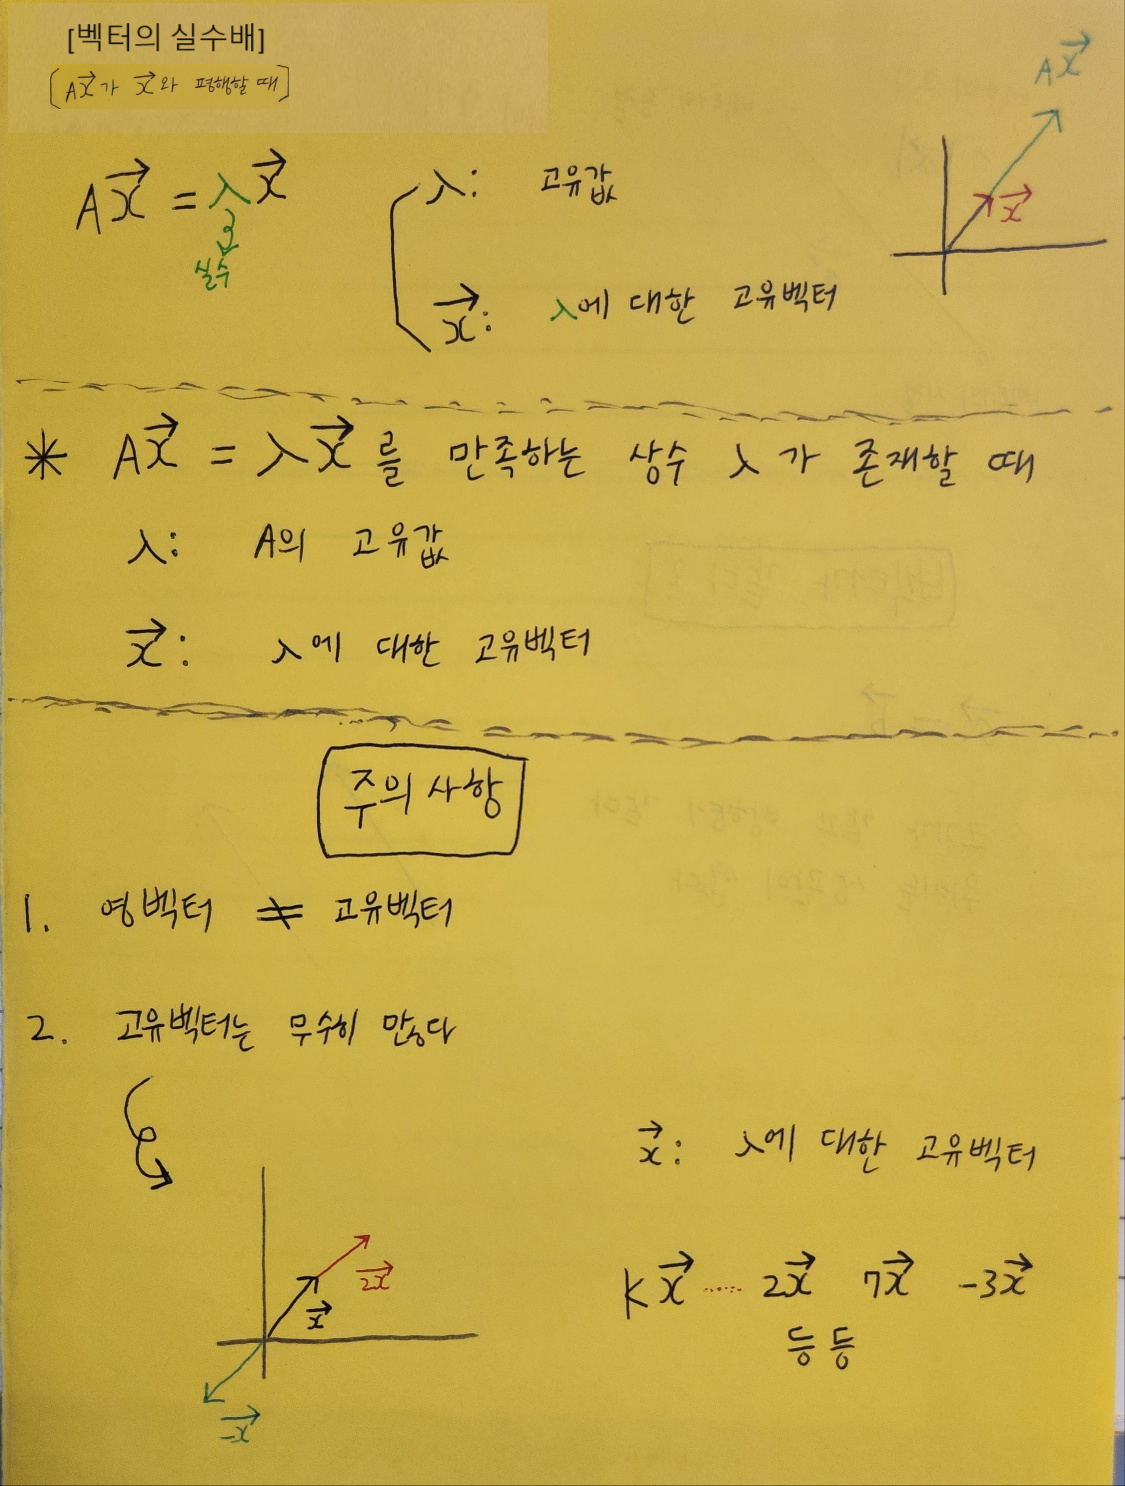 [벡터의 실수배]
[Ax⃗가 x⃗와 평행할 때]
Ax⃗
Ax⃗ = λx⃗
실수
λ: 고유값
x⃗
x⃗: λ에 대한 고유벡터
* Ax⃗ = λx⃗를 만족하는 상수 λ가 존재할 때
λ: A의 고유값
x⃗: λ에 대한 고유벡터
주의 사항
1. 영벡터 ≠ 고유벡터
2. 고유벡터는 무수히 많다
x⃗: λ에 대한 고유벡터
2x⃗
x⃗
-x⃗
kx⃗ ...... 2x⃗ 7x⃗ -3x⃗
등등